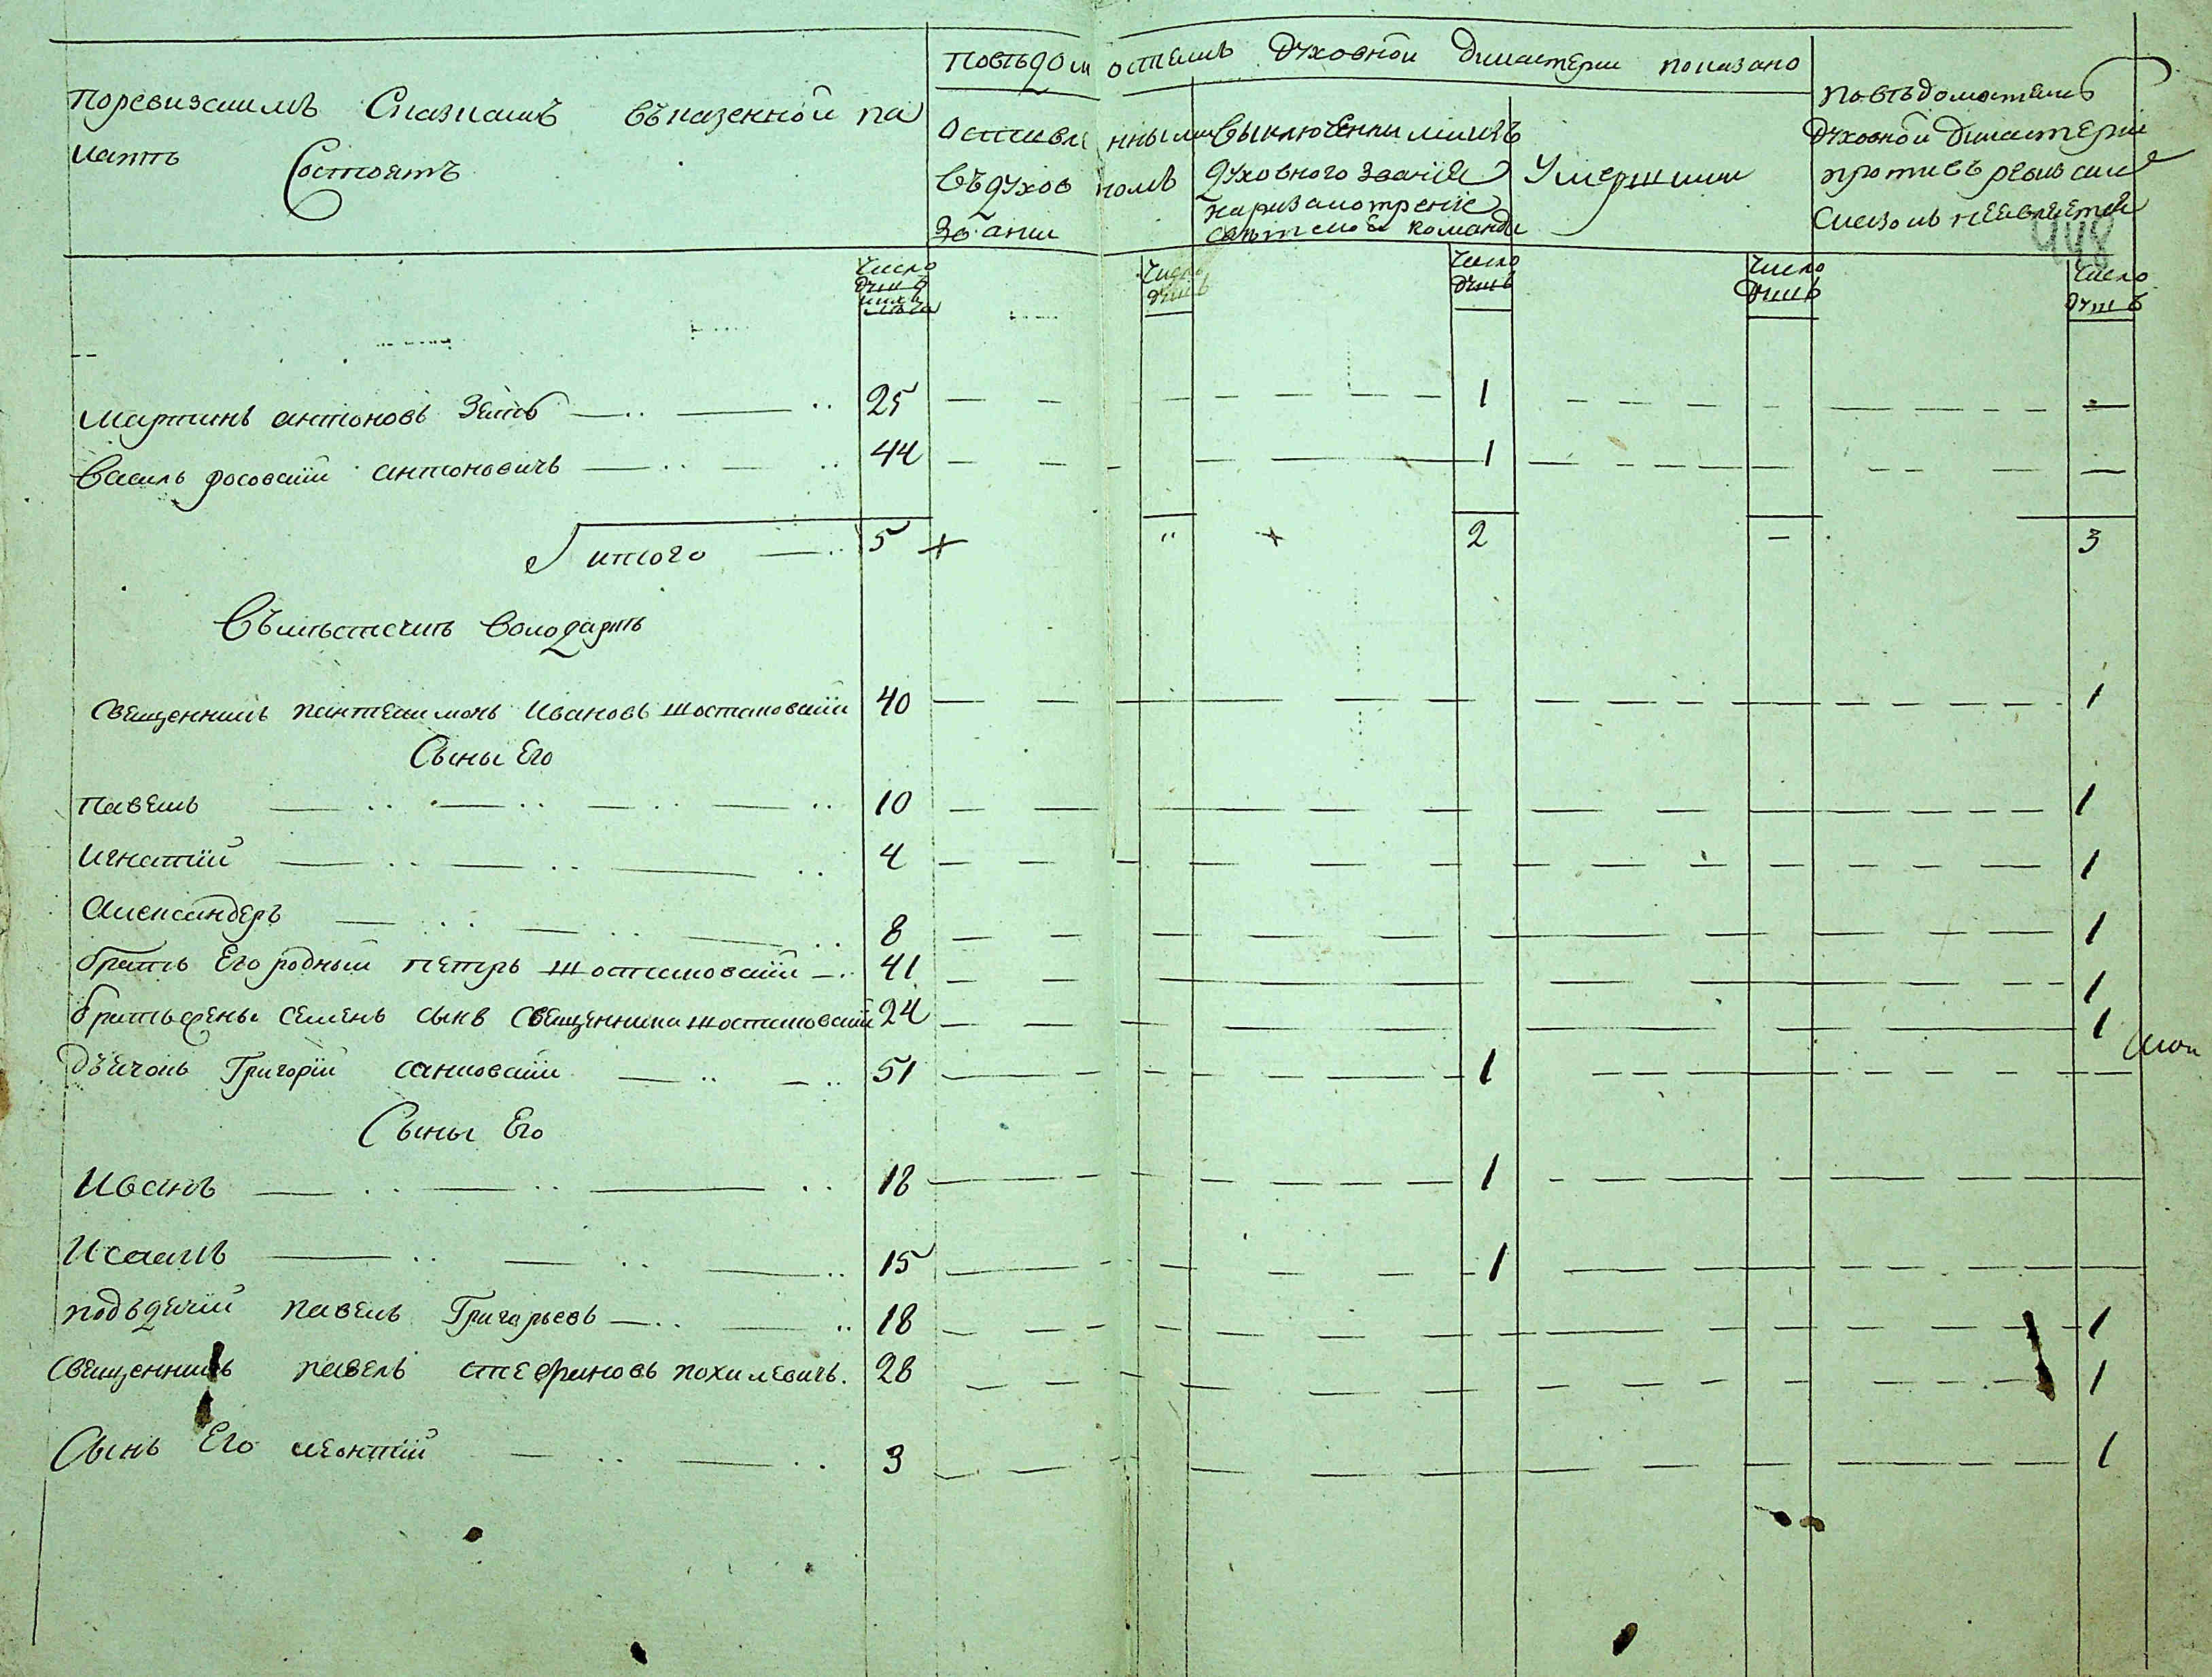 По ревизским Сказкам въ казенной па
латѣ Состоятъ
По вѣдомостямъ духовной дикастерии показано
Оставленными
въ духовномъ
званіи
выключенними изъ
духовного званія
на ризсмотреніе
свѣтской команди
Умершими
по вѣдомостямъ
духовной дикастерии
противъ ревизских
сказокъ неявляется
448
число
душъ
число
душъ
число
душъ
число
душъ
число
душъ
Мартинъ антоновъ 25 1
Василь росовский антоновичъ 44 1
итого 5 2 3
Въ мѣстечкѣ Володаркѣ
священникъ пантелимонъ Ивановъ шостаковский 40 1
Сыны Его
павелъ 10 1
игнатий 4 1
александеръ 8 1
братъ Его родный петръ шостаковский 41 1
семенъ сынъ священника шостаковский 24 1
дьячокъ Григорій 51 1
Сыны Его
Иванъ 18 1
Исакъ 15 1
подъдячий павелъ Григорьевъ 18 1
священникъ павелъ стефановъ похилевичъ 28 1
Сынъ Его леонтий 3 1